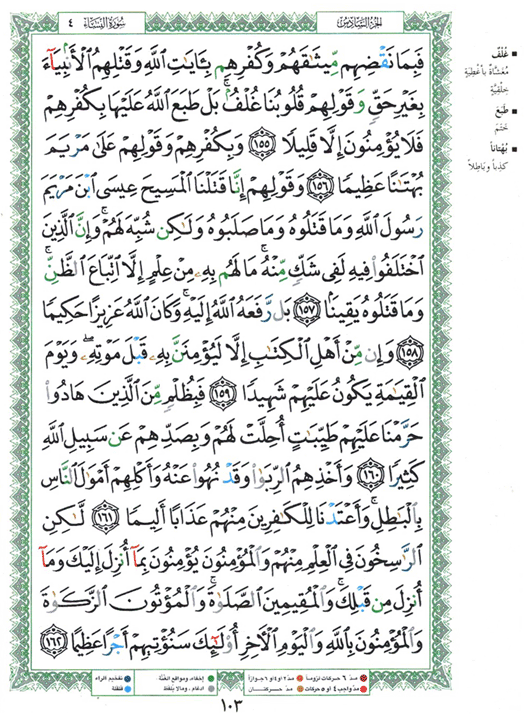 سُورَةُ النِّسَاءِ ٤
الجزء السادس
فَبِمَا نَقْضِهِم مِّيثَٰقَهُمْ وَكُفْرِهِم بِـَٔايَٰتِ ٱللَّهِ وَقَتْلِهِمُ ٱلْأَنۢبِيَآءَ
بِغَيْرِ حَقٍّ وَقَوْلِهِمْ قُلُوبُنَا غُلْفٌۢ ۚ بَلْ طَبَعَ ٱللَّهُ عَلَيْهَا بِكُفْرِهِمْ
فَلَا يُؤْمِنُونَ إِلَّا قَلِيلًا ١٥٥ وَبِكُفْرِهِمْ وَقَوْلِهِمْ عَلَىٰ مَرْيَمَ
بُهْتَٰنًا عَظِيمًا ١٥٦ وَقَوْلِهِمْ إِنَّا قَتَلْنَا ٱلْمَسِيحَ عِيسَى ٱبْنَ مَرْيَمَ
رَسُولَ ٱللَّهِ وَمَا قَتَلُوهُ وَمَا صَلَبُوهُ وَلَٰكِن شُبِّهَ لَهُمْ ۚ وَإِنَّ ٱلَّذِينَ
ٱخْتَلَفُوا۟ فِيهِ لَفِى شَكٍّ مِّنْهُ ۚ مَا لَهُم بِهِۦ مِنْ عِلْمٍ إِلَّا ٱتِّبَاعَ ٱلظَّنِّ ۚ
وَمَا قَتَلُوهُ يَقِينًۢا ١٥٧ بَل رَّفَعَهُ ٱللَّهُ إِلَيْهِ ۚ وَكَانَ ٱللَّهُ عَزِيزًا حَكِيمًا
١٥٨ وَإِن مِّنْ أَهْلِ ٱلْكِتَٰبِ إِلَّا لَيُؤْمِنَنَّ بِهِۦ قَبْلَ مَوْتِهِۦ ۖ وَيَوْمَ
ٱلْقِيَٰمَةِ يَكُونُ عَلَيْهِمْ شَهِيدًا ١٥٩ فَبِظُلْمٍ مِّنَ ٱلَّذِينَ هَادُوا۟
حَرَّمْنَا عَلَيْهِمْ طَيِّبَٰتٍ أُحِلَّتْ لَهُمْ وَبِصَدِّهِمْ عَن سَبِيلِ ٱللَّهِ
كَثِيرًا ١٦٠ وَأَخْذِهِمُ ٱلرِّبَوٰا۟ وَقَدْ نُهُوا۟ عَنْهُ وَأَكْلِهِمْ أَمْوَٰلَ ٱلنَّاسِ
بِٱلْبَٰطِلِ ۚ وَأَعْتَدْنَا لِلْكَٰفِرِينَ مِنْهُمْ عَذَابًا أَلِيمًا ١٦١ لَّٰكِنِ
ٱلرَّٰسِخُونَ فِى ٱلْعِلْمِ مِنْهُمْ وَٱلْمُؤْمِنُونَ يُؤْمِنُونَ بِمَآ أُنزِلَ إِلَيْكَ وَمَآ
أُنزِلَ مِن قَبْلِكَ ۚ وَٱلْمُقِيمِينَ ٱلصَّلَوٰةَ ۚ وَٱلْمُؤْتُونَ ٱلزَّكَوٰةَ
وَٱلْمُؤْمِنُونَ بِٱللَّهِ وَٱلْيَوْمِ ٱلْءَاخِرِ أُو۟لَٰٓئِكَ سَنُؤْتِيهِمْ أَجْرًا عَظِيمًا ١٦٢
غُلْفٌ
مُغَشَّاةٌ بِأَغْطِيَةٍ
خِلْقِيَّةٍ
طَبَعَ
خَتَمَ
بُهْتَاناً
كَذِباً وَبَاطِلاً
مدّ ٦ حركات لزوماً
مدّ ٢ او ٤ او ٦ جوازاً
مدّ واجب ٤ او ٥ حركات
مدّ حركتان
إخفاء، ومواقع الغُنَّة
ادغام، ومالا يُلفَظ
تفخيم الراء
قلقلة
١٠٣